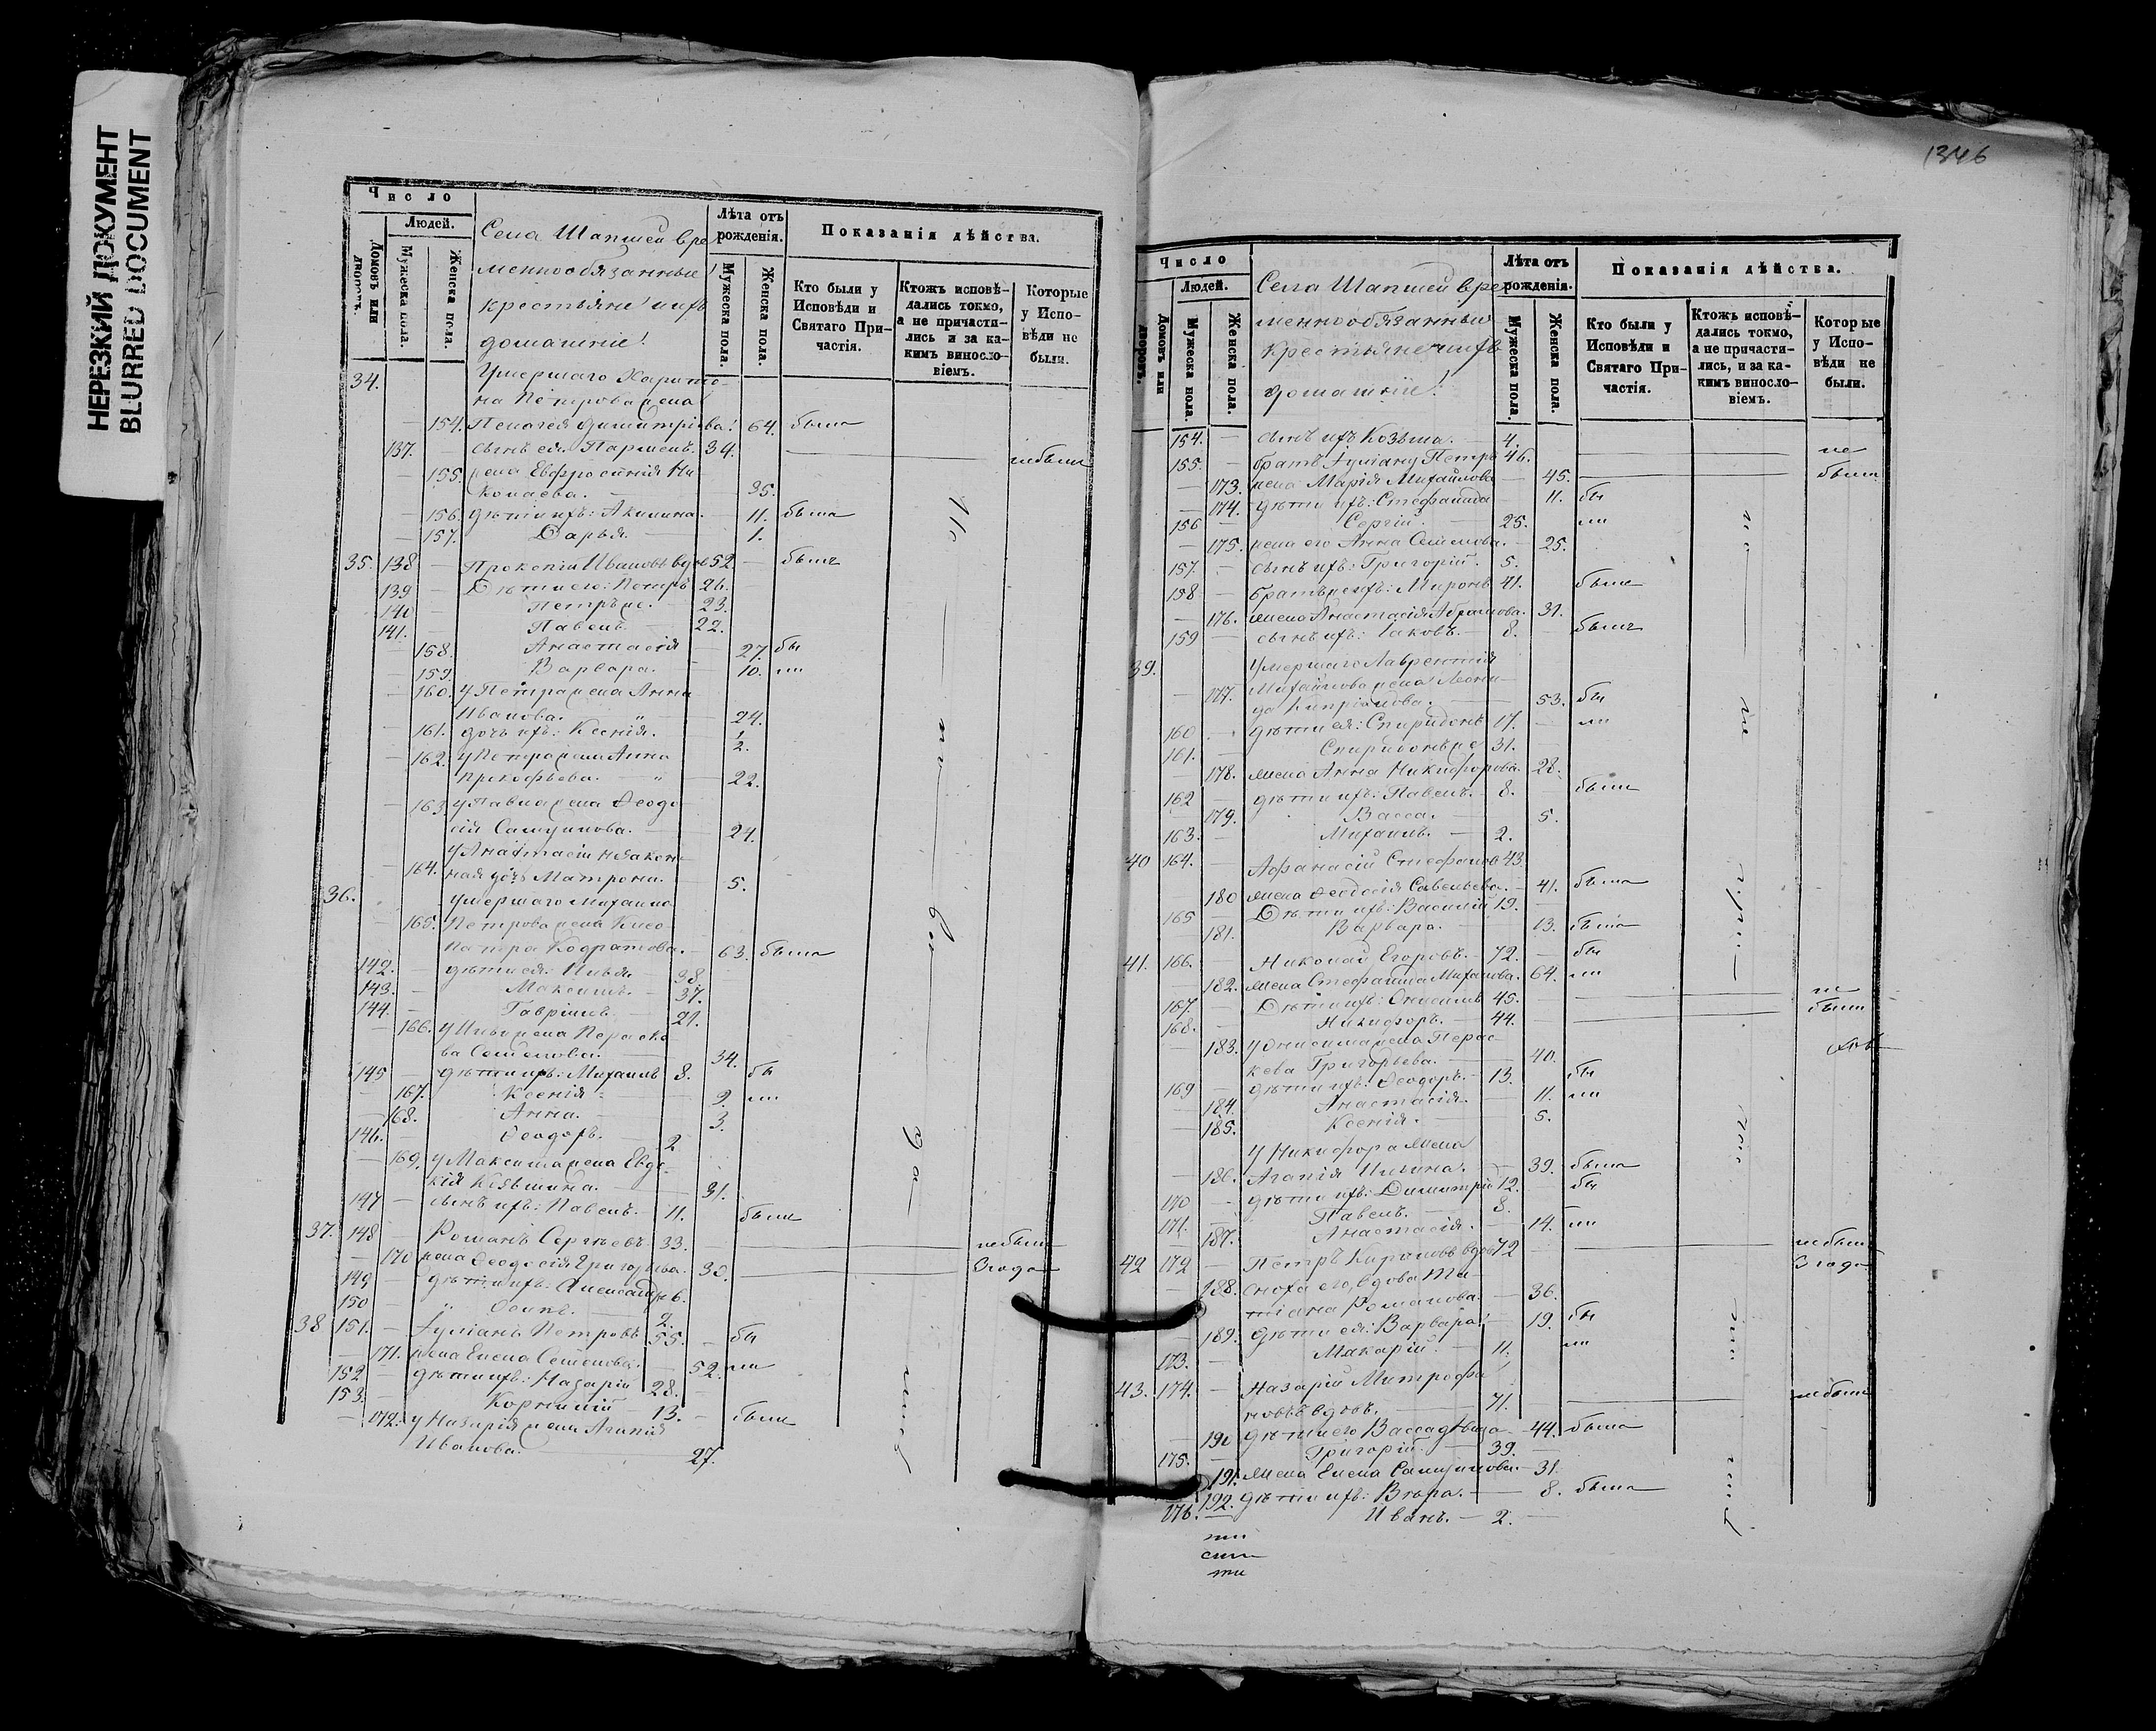 НЕРЕЗКИЙ ДОКУМЕНТ
BLURRED DOCUMENT
Число
Домовъ или дворовъ.
Людей.
Мужеска пола.
Женска пола.
Села Шапшей вре
меннообязанные
крестьяне ихъ
домашніе:
Лѣта отъ рожденія.
Мужеска пола.
Женска пола.
Показанія дѣйства.
Кто были у Исповѣди и Святаго Причастія.
Ктожъ исповѣдались токмо, а не причастились и за какимъ винословіемъ.
Которые у Исповѣди не были.
34. Умершаго Харито
на Петрова жена
154. Пелагея Димитріева: 64. была
137. сынъ ея Парменъ. 34. небыли
155. жена Евфросинія Ни
колаева. 35.
156. дѣти ихъ: Акилина. 11. была
157. Дарья. 1.
35. 138 Прокопій Ивановъ вдов 52. былъ
139 Дѣти его: Петръ 26.
140 Петръ же. 23.
141. Павелъ. 22.
158. Анастасія 27. бы
159. Варвара. 10. ли
160. у Петра жена Анна
Иванова. 24.
161. дочь ихъ: Ксенія. 2.
162. у Петра жена Анна
Прокофьева. 22.
163 у Павла жена Ѳеодо
сія Самуилова. 24.
у Анастасіи незакон
164. ная дочь Матрона. 5.
36. Умершаго Михаила
165. Петрова жена Клео
патра Кодратова. 63. была
142. дѣти ея: Илья 38.
143. Максимъ. 37.
144. Гавріилъ. 21.
166. у Ильи жена Параске
ва Семенова. 34.
145 дѣти ихъ: Михаилъ 8. бы
167. Ксенія 9. ли
168. Анна. 3.
146. Ѳеодоръ. 2
169. у Максима жена Евдо
кія Козьмина. 31.
147 сынъ ихъ: Павелъ. 11. были
37. 148 Романъ Сергѣевъ 33. небыли
170 жена Ѳеодосія Григорьева. 30. 3 года
149 дѣти ихъ: Александръ 6.
150 " Осипъ. 2.
38 151. Іуліанъ Петровъ 55. бы
171. жена Елена Семенова. 52. ли
152 дѣти ихъ: Назарій 28.
153. Корнилій 13. были
172. у Назарія жена Агапія
Иванова. 27.
1346
Число
Домовъ или дворовъ.
Людей.
Мужеска пола.
Женска пола.
Села Шапшей вре
меннообязанные
крестьяне ихъ
домашніе:
Лѣта отъ рожденія.
Мужеска пола.
Женска пола.
Показанія дѣйства.
Кто были у Исповѣди и Святаго Причастія.
Ктожъ исповѣдались токмо, а не причастились, и за какимъ винословіемъ.
Которые у Исповѣди не были.
154. сынъ ихъ Козьма. 4.
155. братъ Іуліану Петръ 46. не
173. жена Марія Михайлова 45. были
174. дѣти ихъ: Стефанида 11. бы
156 Сергій. 25. ли
175. жена его Анна Семенова. 25.
157. сынъ ихъ: Григорій. 5.
158 братъ ихъ: Миронъ 41. были
176. жена Анастасія Абрамова. 31.
159 сынъ ихъ: Іаковъ. 8. былъ
39. Умершаго Лаврентія
177. Михайлова жена Леони
да Кипріанова. 53. бы
160 дѣти ея: Спиридонъ 17. ли
161. Спиридонъ же 31.
178. жена Анна Никифорова. 28.
162 дѣти ихъ: Павелъ. 8. были
179. Васса. 5.
163. Михаилъ. 2.
40 164. Афанасій Стефановъ 43.
180 жена Ѳеодосія Савельева. 41. была
165 Дѣти ихъ: Василій 19.
181. Варвара. 13. была
41. 166. Николай Егоровъ. 72. бы
182. жена Стефанида Михайлова. 64. ли
167. Дѣти ихъ: Онисимъ 45. не
168. Никифоръ. 44. были
183. у Онисима жена Парас
кева Григорьева. 40.
169 дѣти ихъ: Ѳеодоръ. 13. бы
184. Анастасія. 11. ли
185. Ксенія. 5.
у Никифора жена
186. Агапія Ильина. 39. была
170 дѣти ихъ: Димитрій 12. бы
171. Павелъ. 8.
187. Анастасія. 14. ли
42 172 Петръ Карповъ вдовъ 72 небылъ
188. сноха его, вдова Та 3 года
тіана Романова. 36.
189. дѣти ея: Варвара: 19. бы
173. Макарій. 11. ли
43. 174. Назарій Митрофа
новъ вдовъ. 71. небылъ
190 дѣти его Васса дѣвица 44. была
175. Григорій. 39.
191. жена Елена Самуилова. 31.
192. дѣти ихъ: Вѣра. 8. была
176. Иванъ. 2.